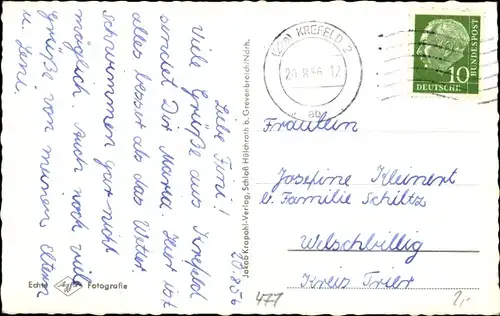 Liebe Fini!
Viele Grüße aus Krefeld
sendet Dir Maria. Hier ist
alles besser als das Wetter.
Schwimmen gar nicht
möglich. Auch noch viel
Grüße von meinen Eltern
u. Leni.
Echte Fotografie
Jakob Krapohl-Verlag, Schloß Hülchrath b. Grevenbroich/Ndrh.
KREFELD 2
20.8.56.-12
ab
10
DEUTSCHE
BUNDESPOST
Fräulein
Josefine Kleinert
b. Familie Schiltz
Welschbillig
Kreis Trier
477
2,-